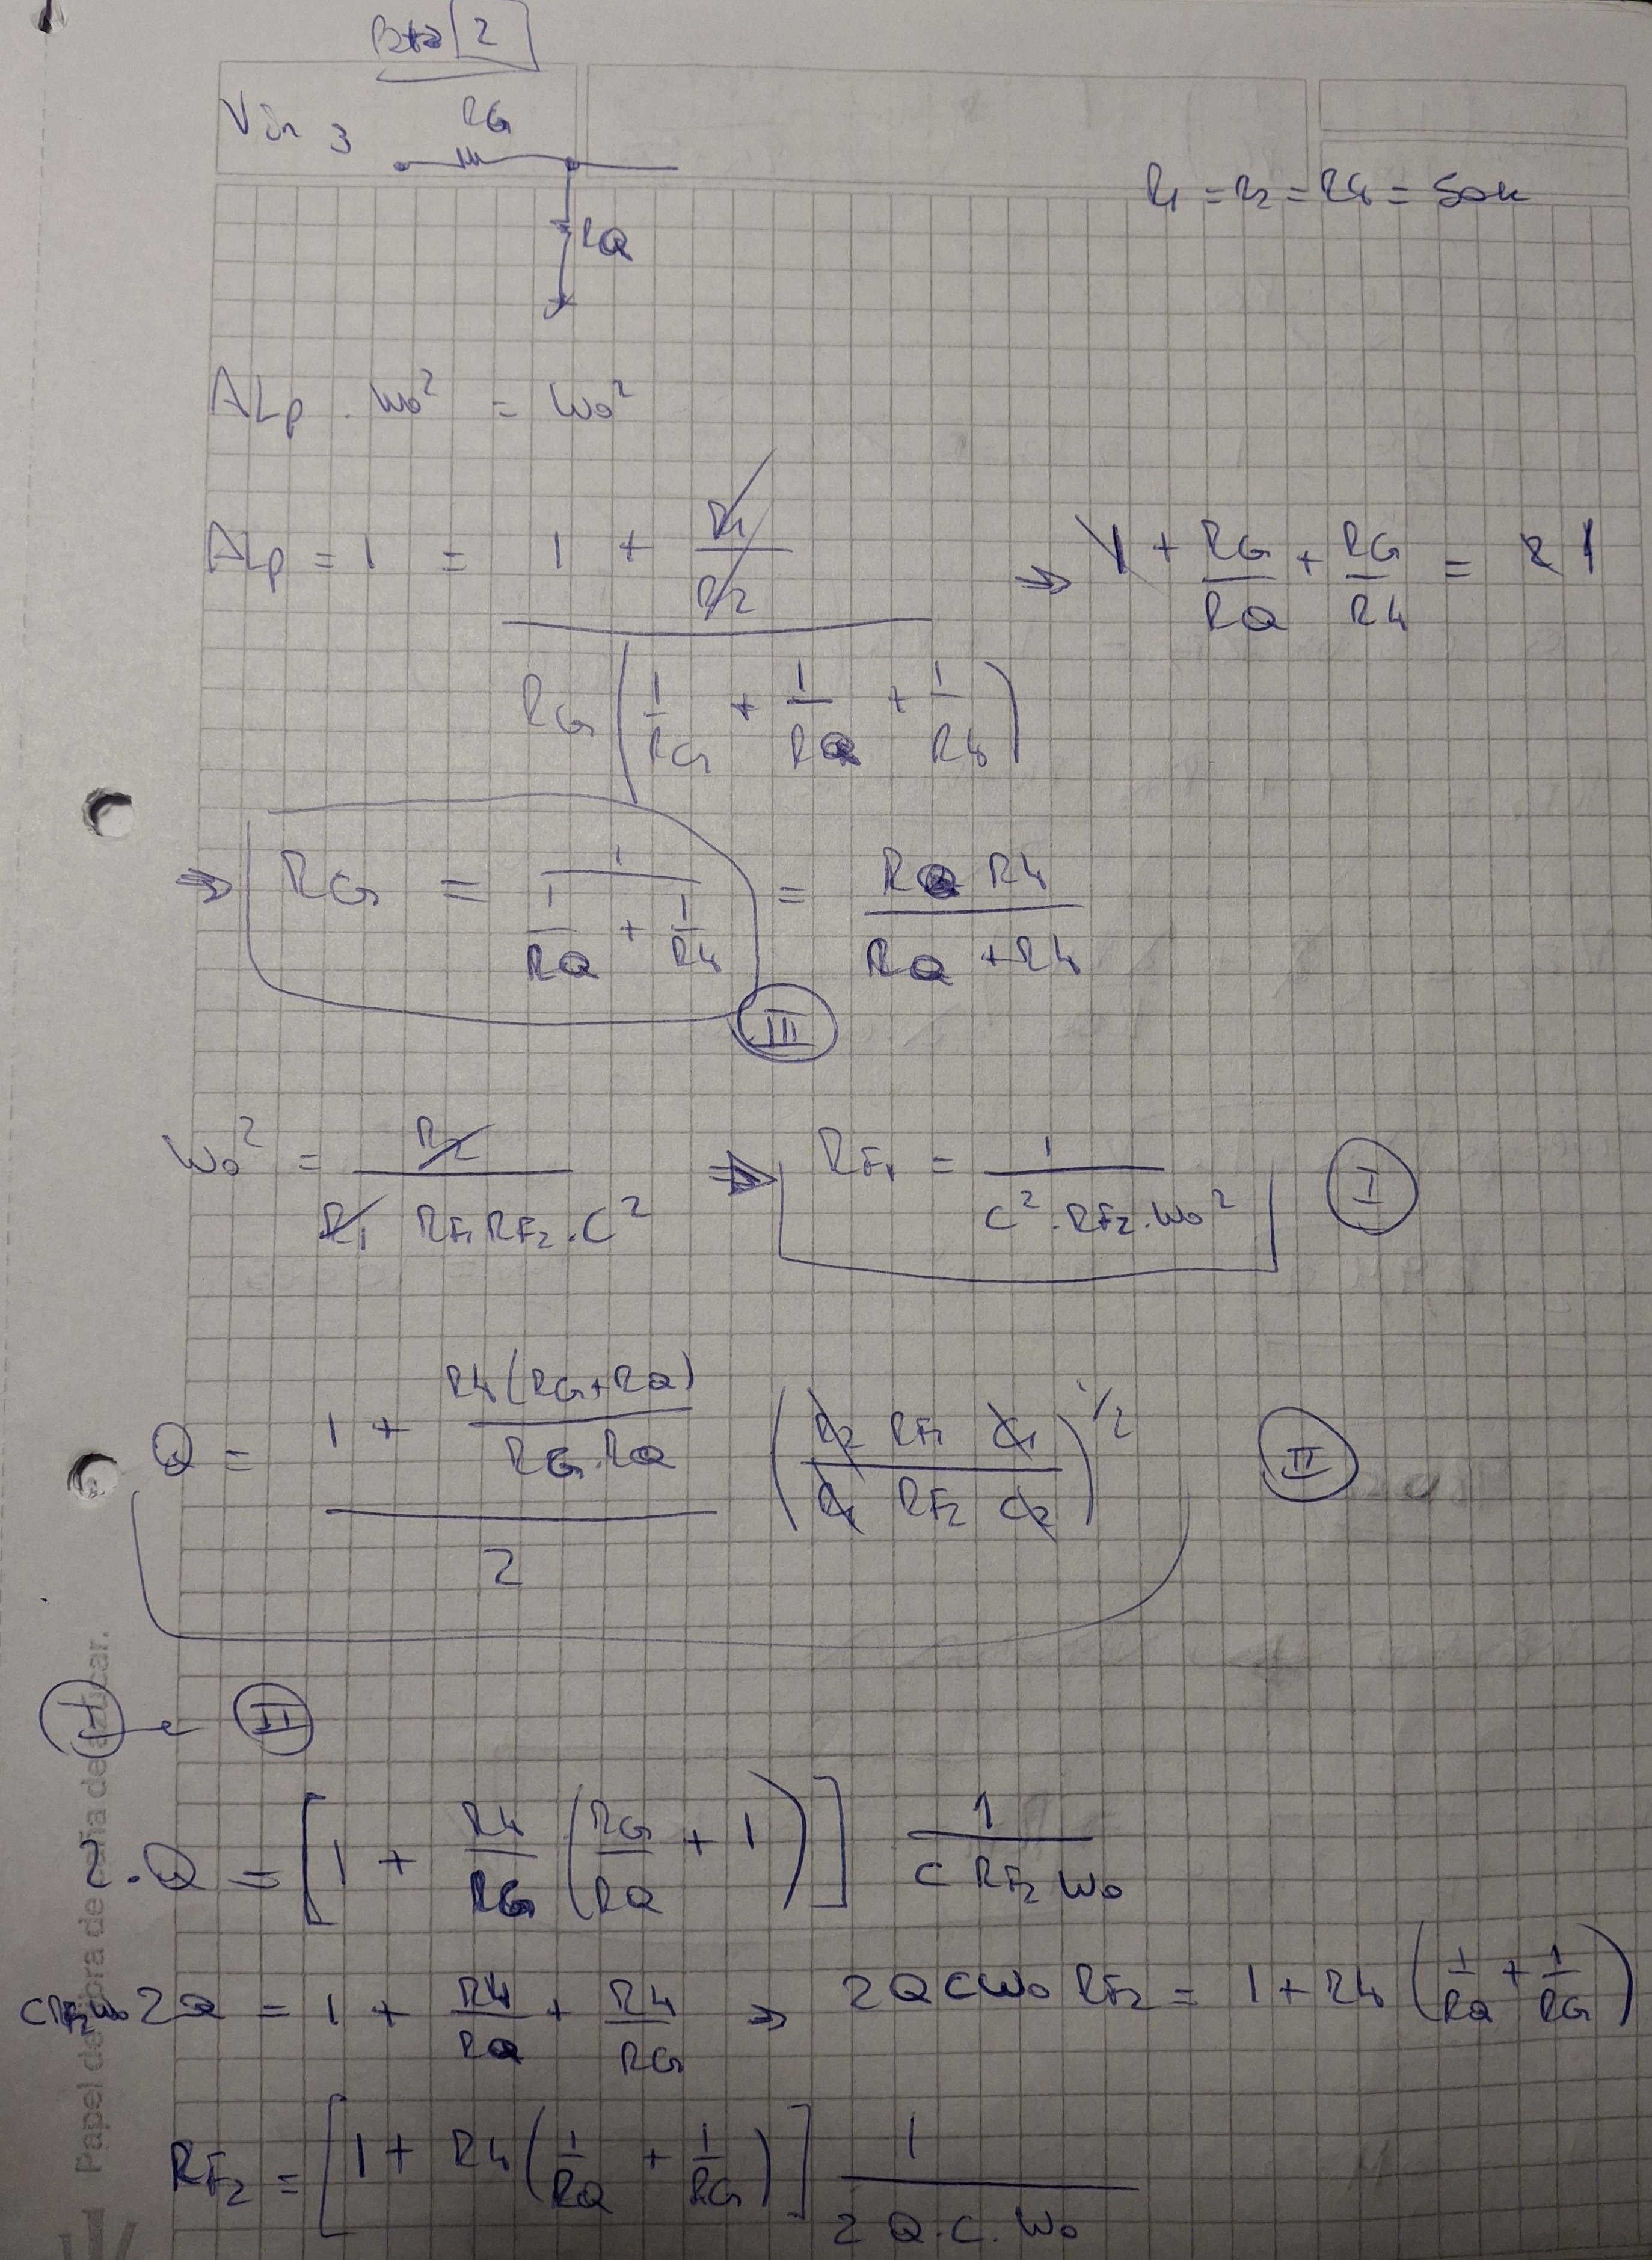 [2]
Vin 3 RG
R1 = R2 = R4 = 50k
RQ
ALp . Wo² = Wo²
ALp = 1 = (1 + R1/R2) / (RG (1/RG + 1/RQ + 1/R4)) ⇒ 1 + RG/RQ + RG/R4 = 2 1
⇒ RG = 1 / (1/RQ + 1/R4) = RQ R4 / (RQ + R4)
III
Wo² = R2 / (R1 RF1 RF2 . C²) ⇒ RF1 = 1 / (C² . RF2 . Wo²) I
Q = (1 + R4(RG+RQ) / (RG.RQ)) / 2 (R2 RF1 C1 / (R1 RF2 C2))^1/2 II
I II
2.Q = [1 + R4/RG (RG/RQ + 1)] 1 / (C RF2 Wo)
C RF2 Wo 2Q = 1 + R4/RQ + R4/RG ⇒ 2QCWo RF2 = 1 + R4 (1/RQ + 1/RG)
RF2 = [1 + R4 (1/RQ + 1/RG)] 1 / (2 Q.C.Wo)
Papel de fibra de caña de azúcar.